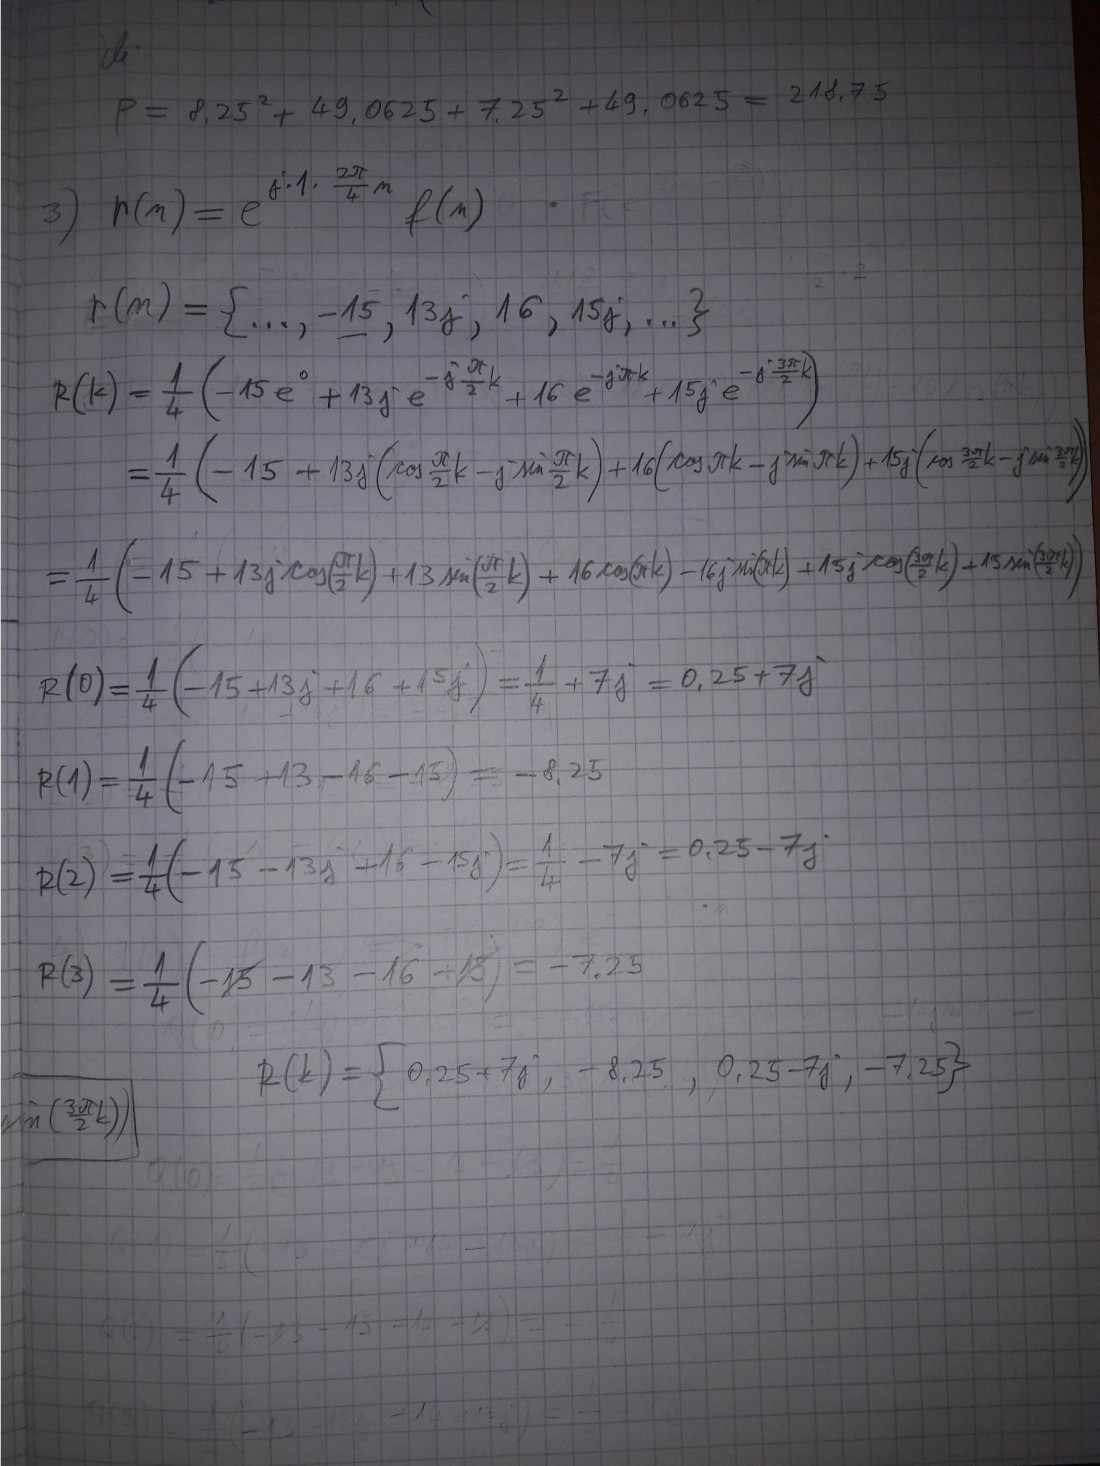 P = 8.25² + 49.0625 + 7.25² + 49.0625 = 218.75
3) r(n) = e^{j·1·\frac{2π}{4}n} f(n)
r(n) = {..., -15, 13j, 16, 15j, ...}
R(k) = \frac{1}{4}(-15e^0 + 13j e^{-j\frac{π}{2}k} + 16e^{-jπk} + 15j e^{-j\frac{3π}{2}k})
= \frac{1}{4}(-15 + 13j(cos\frac{π}{2}k - j sin\frac{π}{2}k) + 16(cosπk - j sinπk) + 15j(cos\frac{3π}{2}k - j sin\frac{3π}{2}k))
= \frac{1}{4}(-15 + 13j cos(\frac{π}{2}k) + 13 sin(\frac{π}{2}k) + 16cos(πk) - 16j sin(πk) + 15j cos(\frac{3π}{2}k) + 15 sin(\frac{3π}{2}k))
R(0) = \frac{1}{4}(-15 + 13j + 16 + 15j) = \frac{1}{4} + 7j = 0.25 + 7j
R(1) = \frac{1}{4}(-15 + 13 - 16 - 15) = -8.25
R(2) = \frac{1}{4}(-15 - 13j + 16 - 15j) = \frac{1}{4} - 7j = 0.25 - 7j
R(3) = \frac{1}{4}(-15 - 13 - 16 + 15) = -7.25
R(k) = {0.25 + 7j, -8.25, 0.25 - 7j, -7.25}
sin(\frac{3π}{2}k))